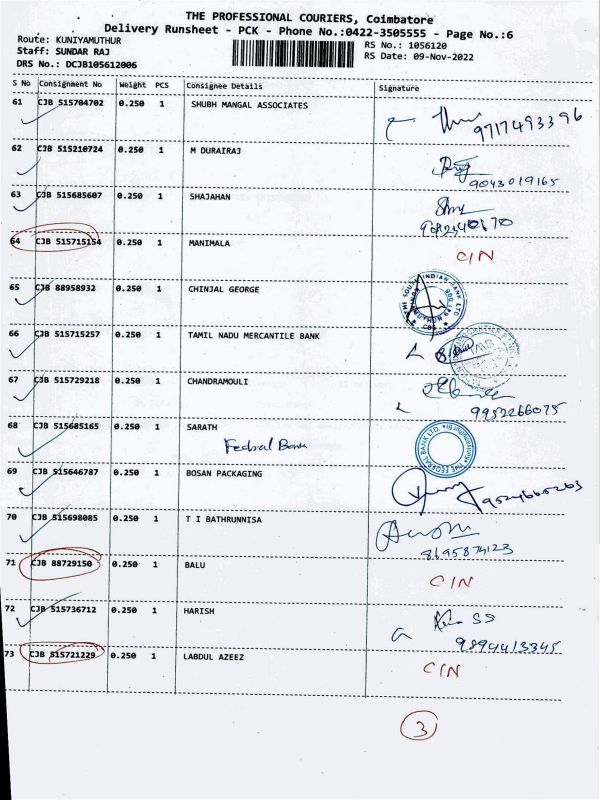 THE PROFESSIONAL COURIERS, Coimbatore
Delivery Runsheet - PCK - Phone No.:0422-3505555 - Page No.:6
Route: KUNIYAMUTHUR RS No.: 1056120
Staff: SUNDAR RAJ RS Date: 09-Nov-2022
DRS No.: DCJB105612006
S No Consignment No Weight PCS Consignee Details Signature
61 CJB 515704702 0.250 1 SHUBH MANGAL ASSOCIATES 9717493396
62 CJB 515210724 0.250 1 M DURAIRAJ
9043019165
63 CJB 515685607 0.250 1 SHAJAHAN
64 CJB 515715154 0.250 1 MANIMALA C/N
65 CJB 88958932 0.250 1 CHINJAL GEORGE
66 CJB 515715257 0.250 1 TAMIL NADU MERCANTILE BANK
67 CJB 515729218 0.250 1 CHANDRAMOULI
9952266075
68 CJB 515685165 0.250 1 SARATH
Fedral Bank
THE FEDERAL BANK LTD.
69 CJB 515646787 0.250 1 BOSAN PACKAGING
70 CJB 515698085 0.250 1 T I BATHRUNNISA
71 CJB 88729150 0.250 1 BALU C/N
72 CJB 515736712 0.250 1 HARISH
9894413345
73 CJB 515721229 0.250 1 LABDUL AZEEZ C/N
3